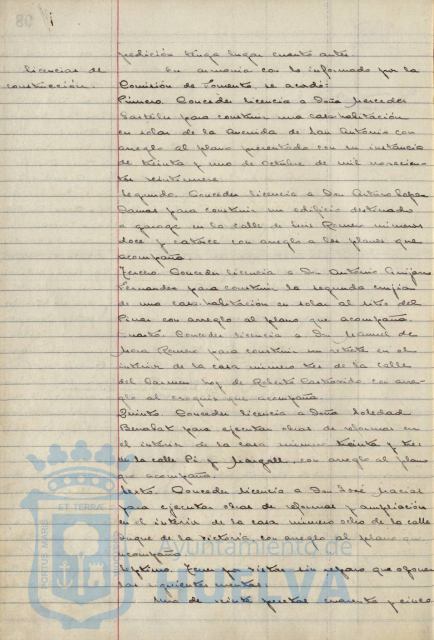 pedición tenga lugar cuanto antes.
licencias de construcción.
En armonia con lo informado por la
Comisión de Fomento, se acordó:
Primero. Conceder licencia a Doña Mercedes
para construir una casa habitación
en solar de la Avenida de San Antonio con
arreglo al plano presentado con su instancia
de treinta y uno de Octubre de mil novecien-
tos veintinueve.
Segundo. Conceder licencia a Don Arturo López
Damas para construir un edificio destinado
a garage en la calle de Romero números
doce y catorce con arreglo a los planos que
acompaña.
Tercero. Conceder licencia a Dn Antonio
Fernandez para construir la segunda crujía
de una casa habitación en solar al sitio del
Pinar con arreglo al plano que acompaña.
Cuarto. Conceder licencia a Dn Manuel de
Mora Romero para construir un retrete en el
interior de la casa número tres de la calle
del Carmen, hoy de Roberto Castrovido con arre-
glo al croquis que acompaña.
Quinto. Conceder licencia a Doña Soledad
para ejecutar obras de reformas en
el interior de la casa número treinta y tres
de la calle Pi y Margall, con arreglo al plano
que acompaña.
Sexto. Conceder licencia a Don José Macias
para ejecutar obras de reformas y ampliación
en el interior de la casa número ocho de la calle
Duque de la Victoria, con arreglo al plano que
acompaña.
Séptimo. Tener por vistas sin reparo que oponer
las siguientes cuentas:
Una de veinte pesetas cuarenta y cinco
PORTUS MARIS
ET TERRÆ
Ayuntamiento de
HUELVA